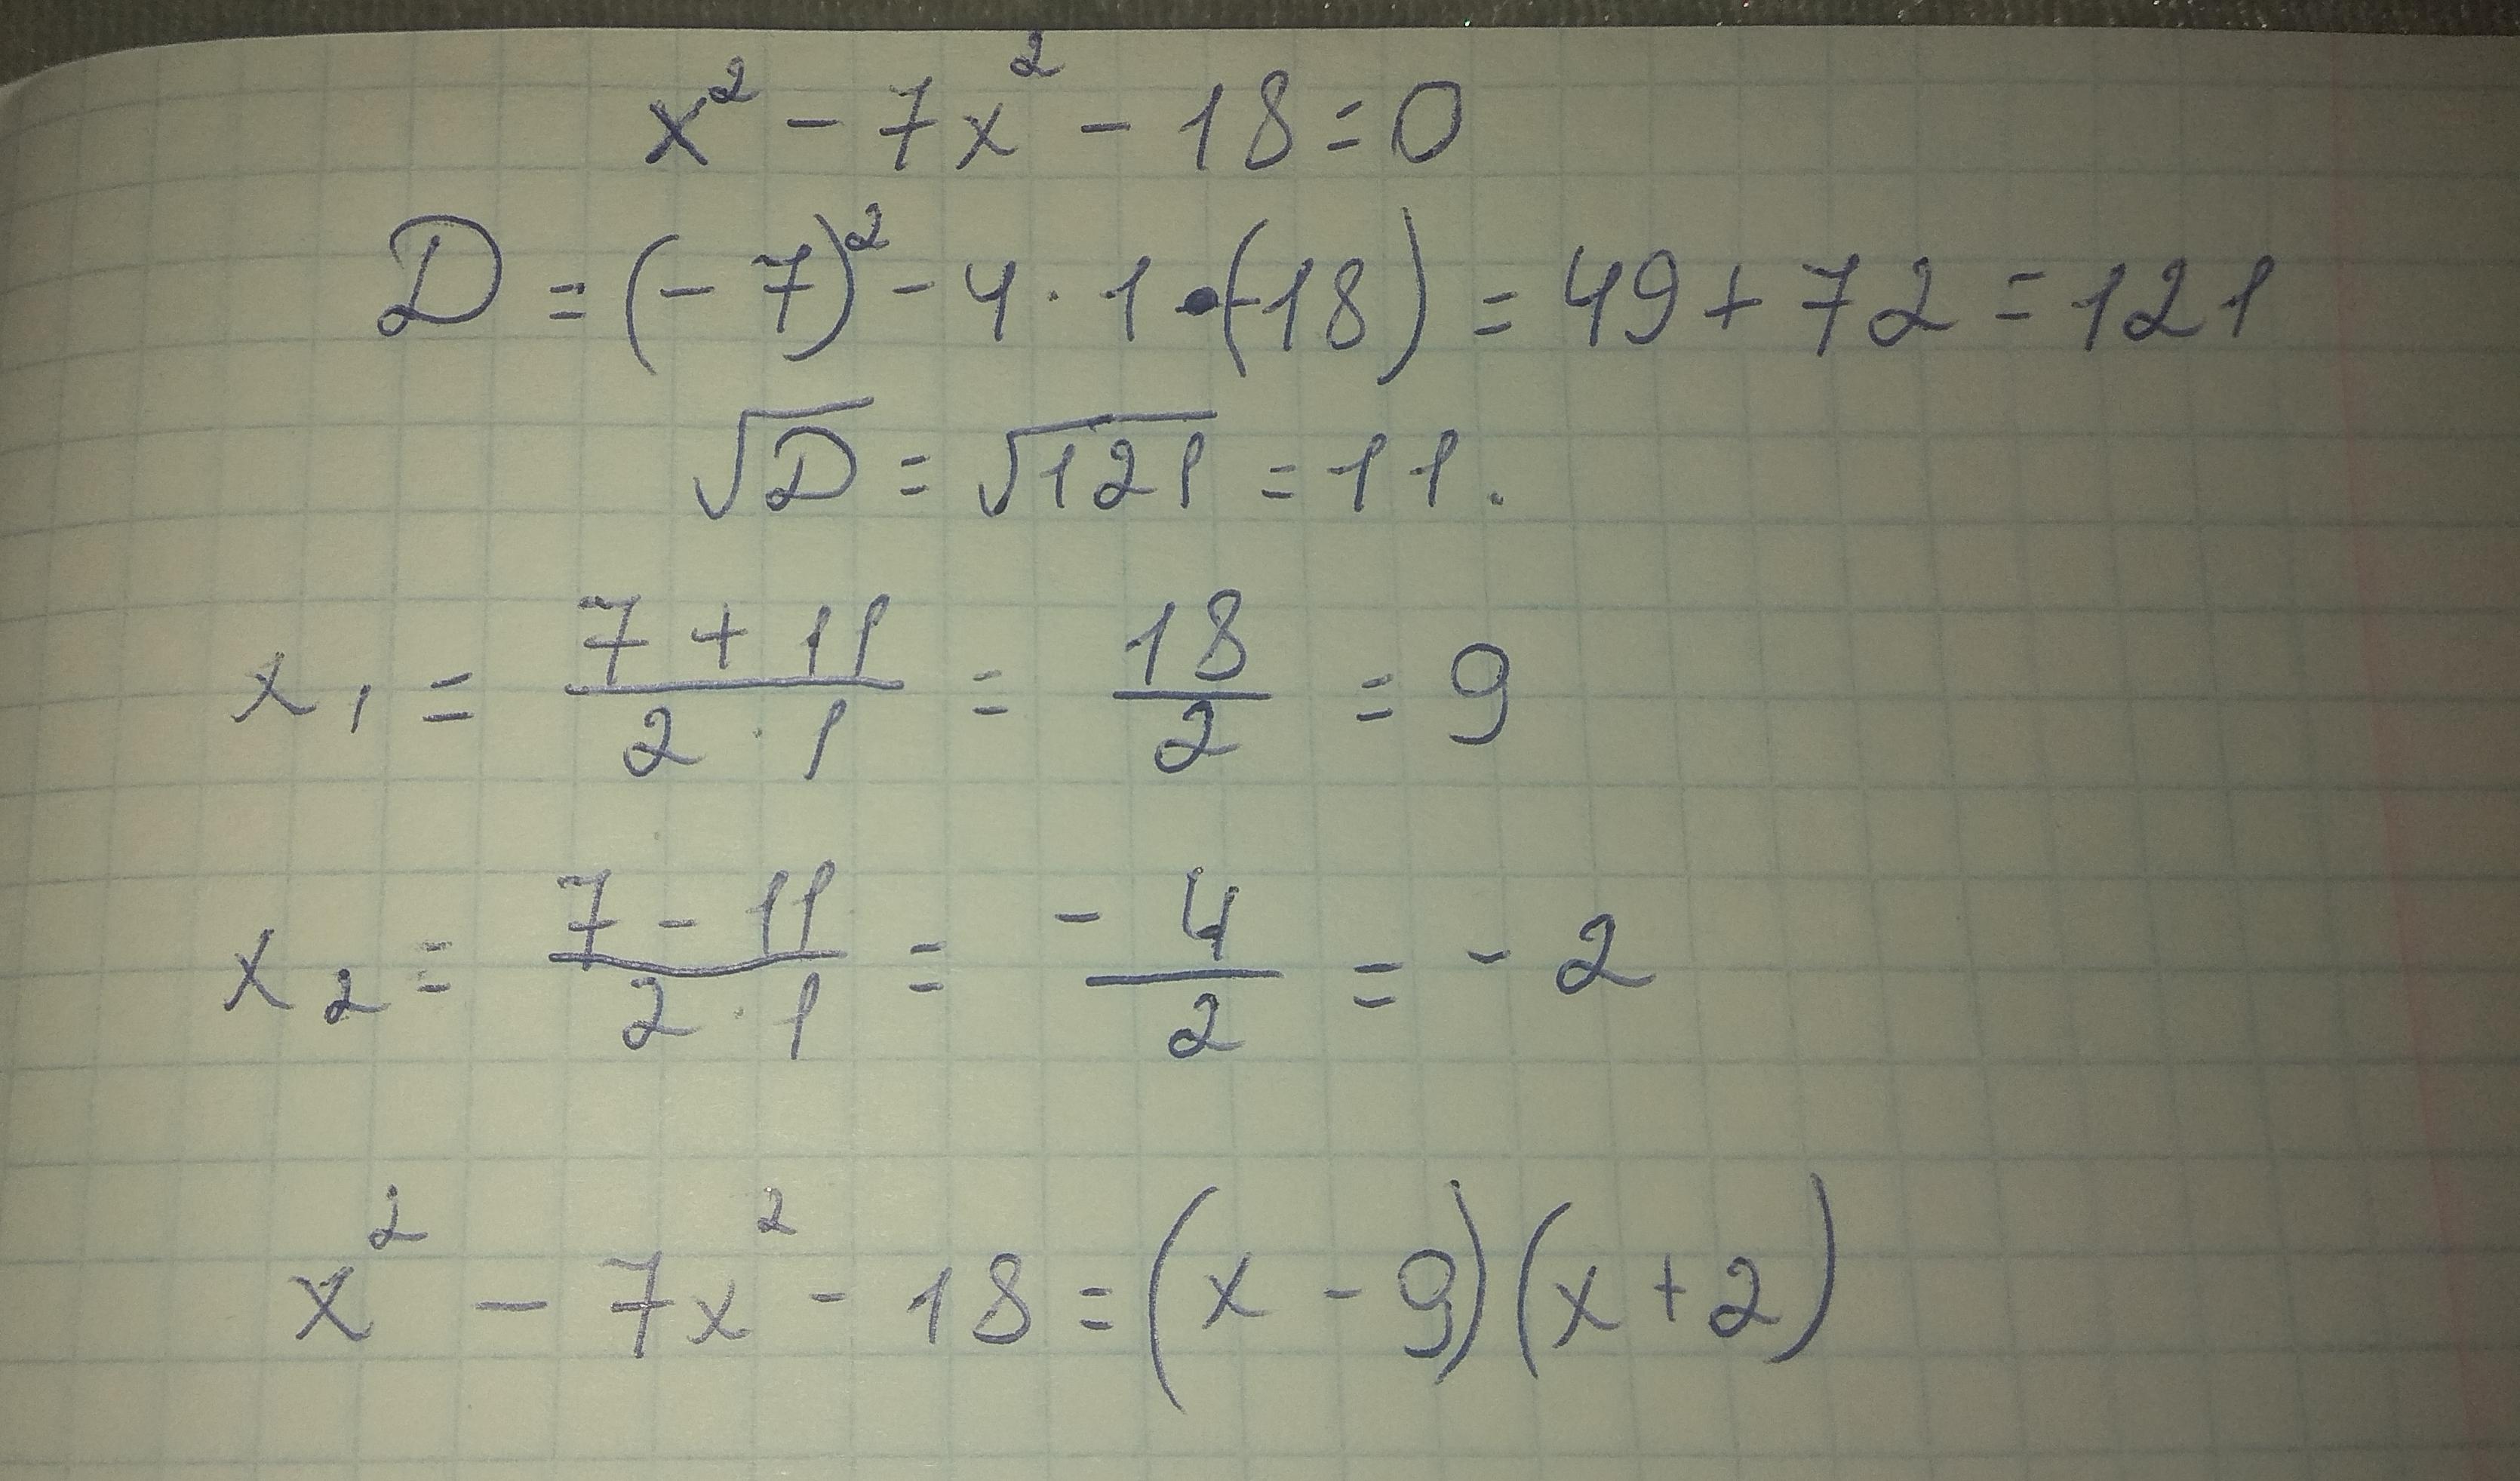 x² - 7x² - 18 = 0
D = (-7)² - 4 · 1 · (-18) = 49 + 72 = 121
√D = √121 = 11.
x₁ = (7 + 11)/(2 · 1) = 18/2 = 9
x₂ = (7 - 11)/(2 · 1) = -4/2 = -2
x² - 7x² - 18 = (x - 9)(x + 2)